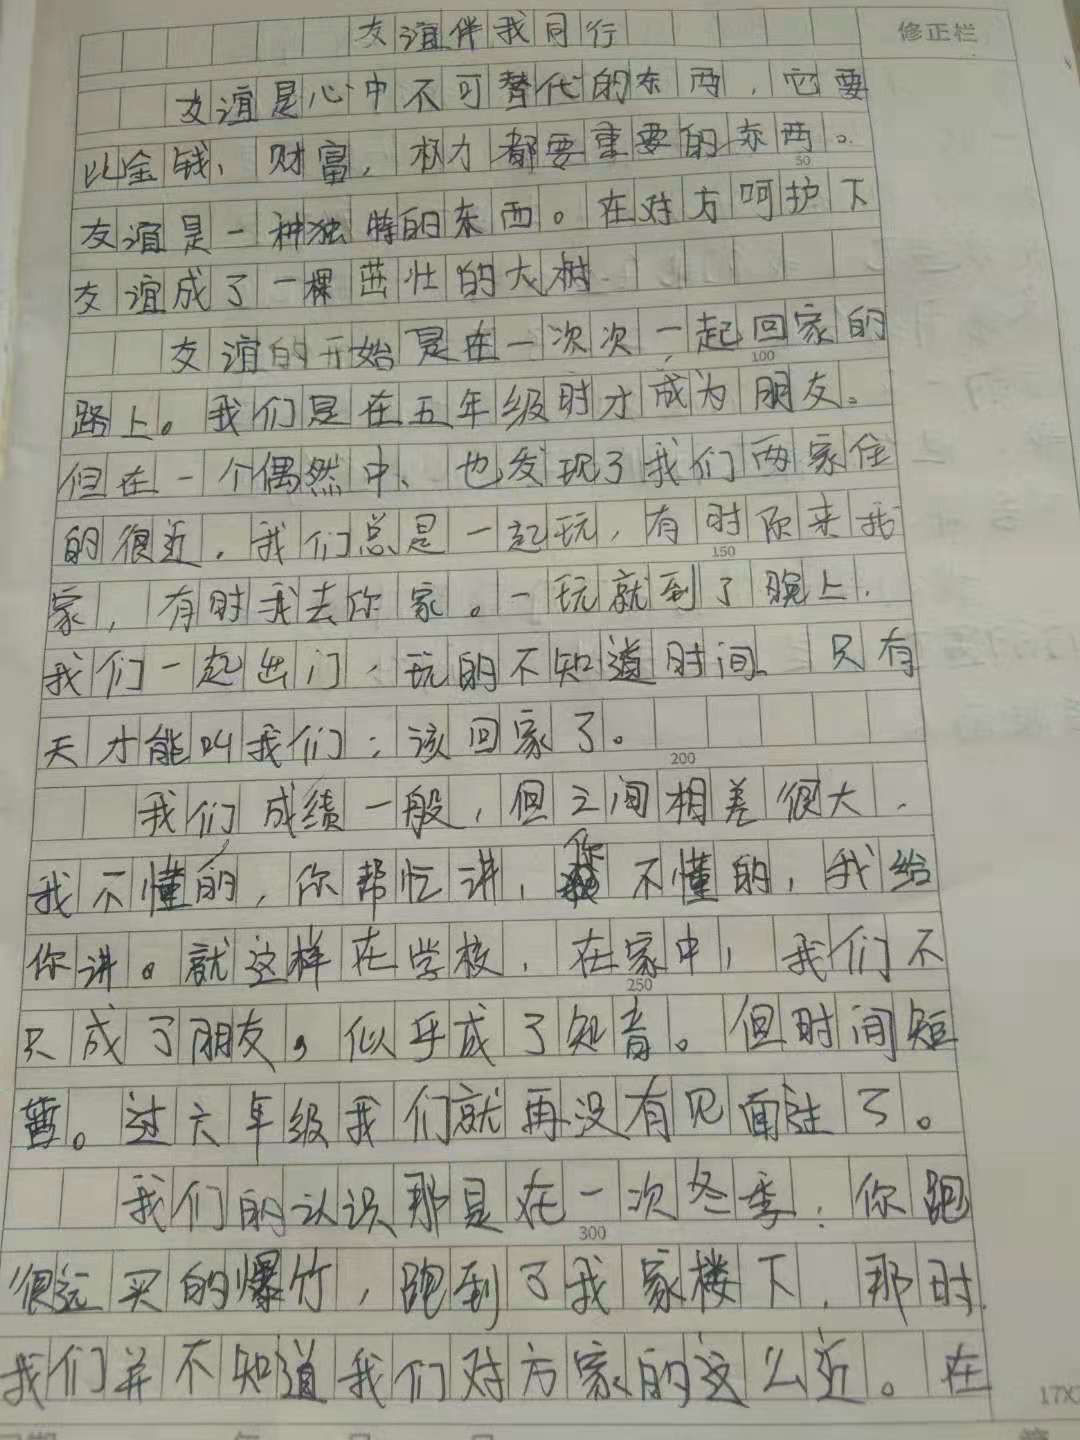 友谊伴我同行
修正栏
友谊是心中不可替代的东西，它要
比金钱、财富，权力都要重要的东西。
50
友谊是一种独特的东西。在对方呵护下
友谊成了一棵茁壮的大树
友谊的开始是在一次次一起回家的
100
路上。我们是在五年级时才成为朋友。
但在一个偶然中、也发现了我们两家住
的很近，我们总是一起玩，有时你来我
150
家，有时我去你家。一玩就到了晚上，
我们一起出门，玩的不知道时间、只有
天才能叫我们：该回家了。
200
我们成绩一般，但之间相差很大，
我不懂的，你帮忙讲，你不懂的，我给
你讲。就这样在学校，在家中，我们不
250
只成了朋友，似乎成了知音。但时间短
暂。过六年级我们就再没有见面过了。
我们的认识那是在一次冬季：你跑
300
很远买的爆竹，跑到了我家楼下，那时
我们并不知道我们对方家的这么近。在
17X